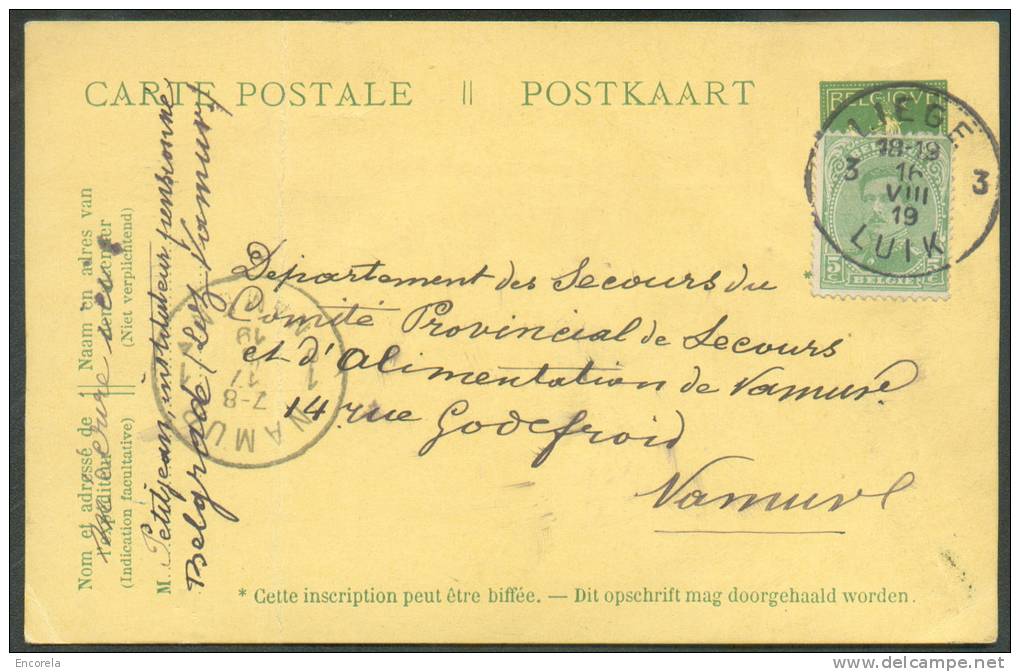 CARTE POSTALE || POSTKAART
BELGIQUE
LIEGE
18-19
3 16 3
VIII
19
LUIK
5c 5c
BELGIË
Département des Secours du
Comité Provincial de Secours
et d'Alimentation de Namur
14 rue Godefroid
Namur
NAMUR
7-8
17
19
1 1
NAMEN
Nom et adresse de || Naam en adres van
l'expéditeur || den afzender
(Indication facultative) (Niet verplichtend)
M. Petitjean instituteur pensionné
Belgrade (Lez Namur)
* Cette inscription peut être biffée. — Dit opschrift mag doorgehaald worden.
Encorela
delcampe.net